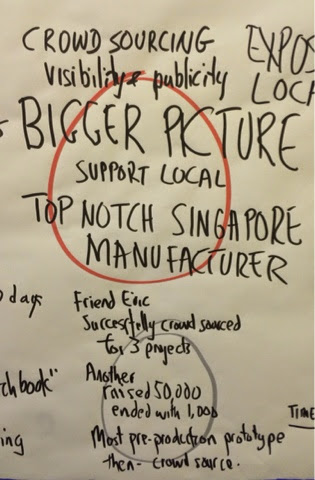 CROWD SOURCING
Visibility & publicity
BIGGER PICTURE
SUPPORT LOCAL
TOP NOTCH SINGAPORE
MANUFACTURER
EXPOS
LOCA
days
Friend Eric
Succesfelly crowd sourced
for 3 projects
chbook"
Another
raised 50,000
ended with 1,000
TIME
ing
Most pre-production prototype
then - crowd source.